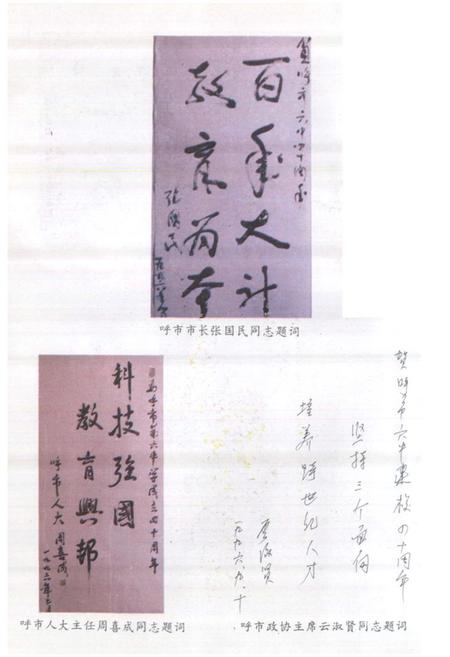 贺呼市六中四十周年
百年大计
教育为本
张国民
呼市市长张国民同志题词
为呼市第六中学成立四十周年
科技强国
教育興邦
呼市人大 周喜成
呼市人大主任周喜成同志题词
贺呼市六中建校四十周年
坚持三个面向
培养跨世纪人才
云淑贤
一九九六.九.十
呼市政协主席云淑贤同志题词